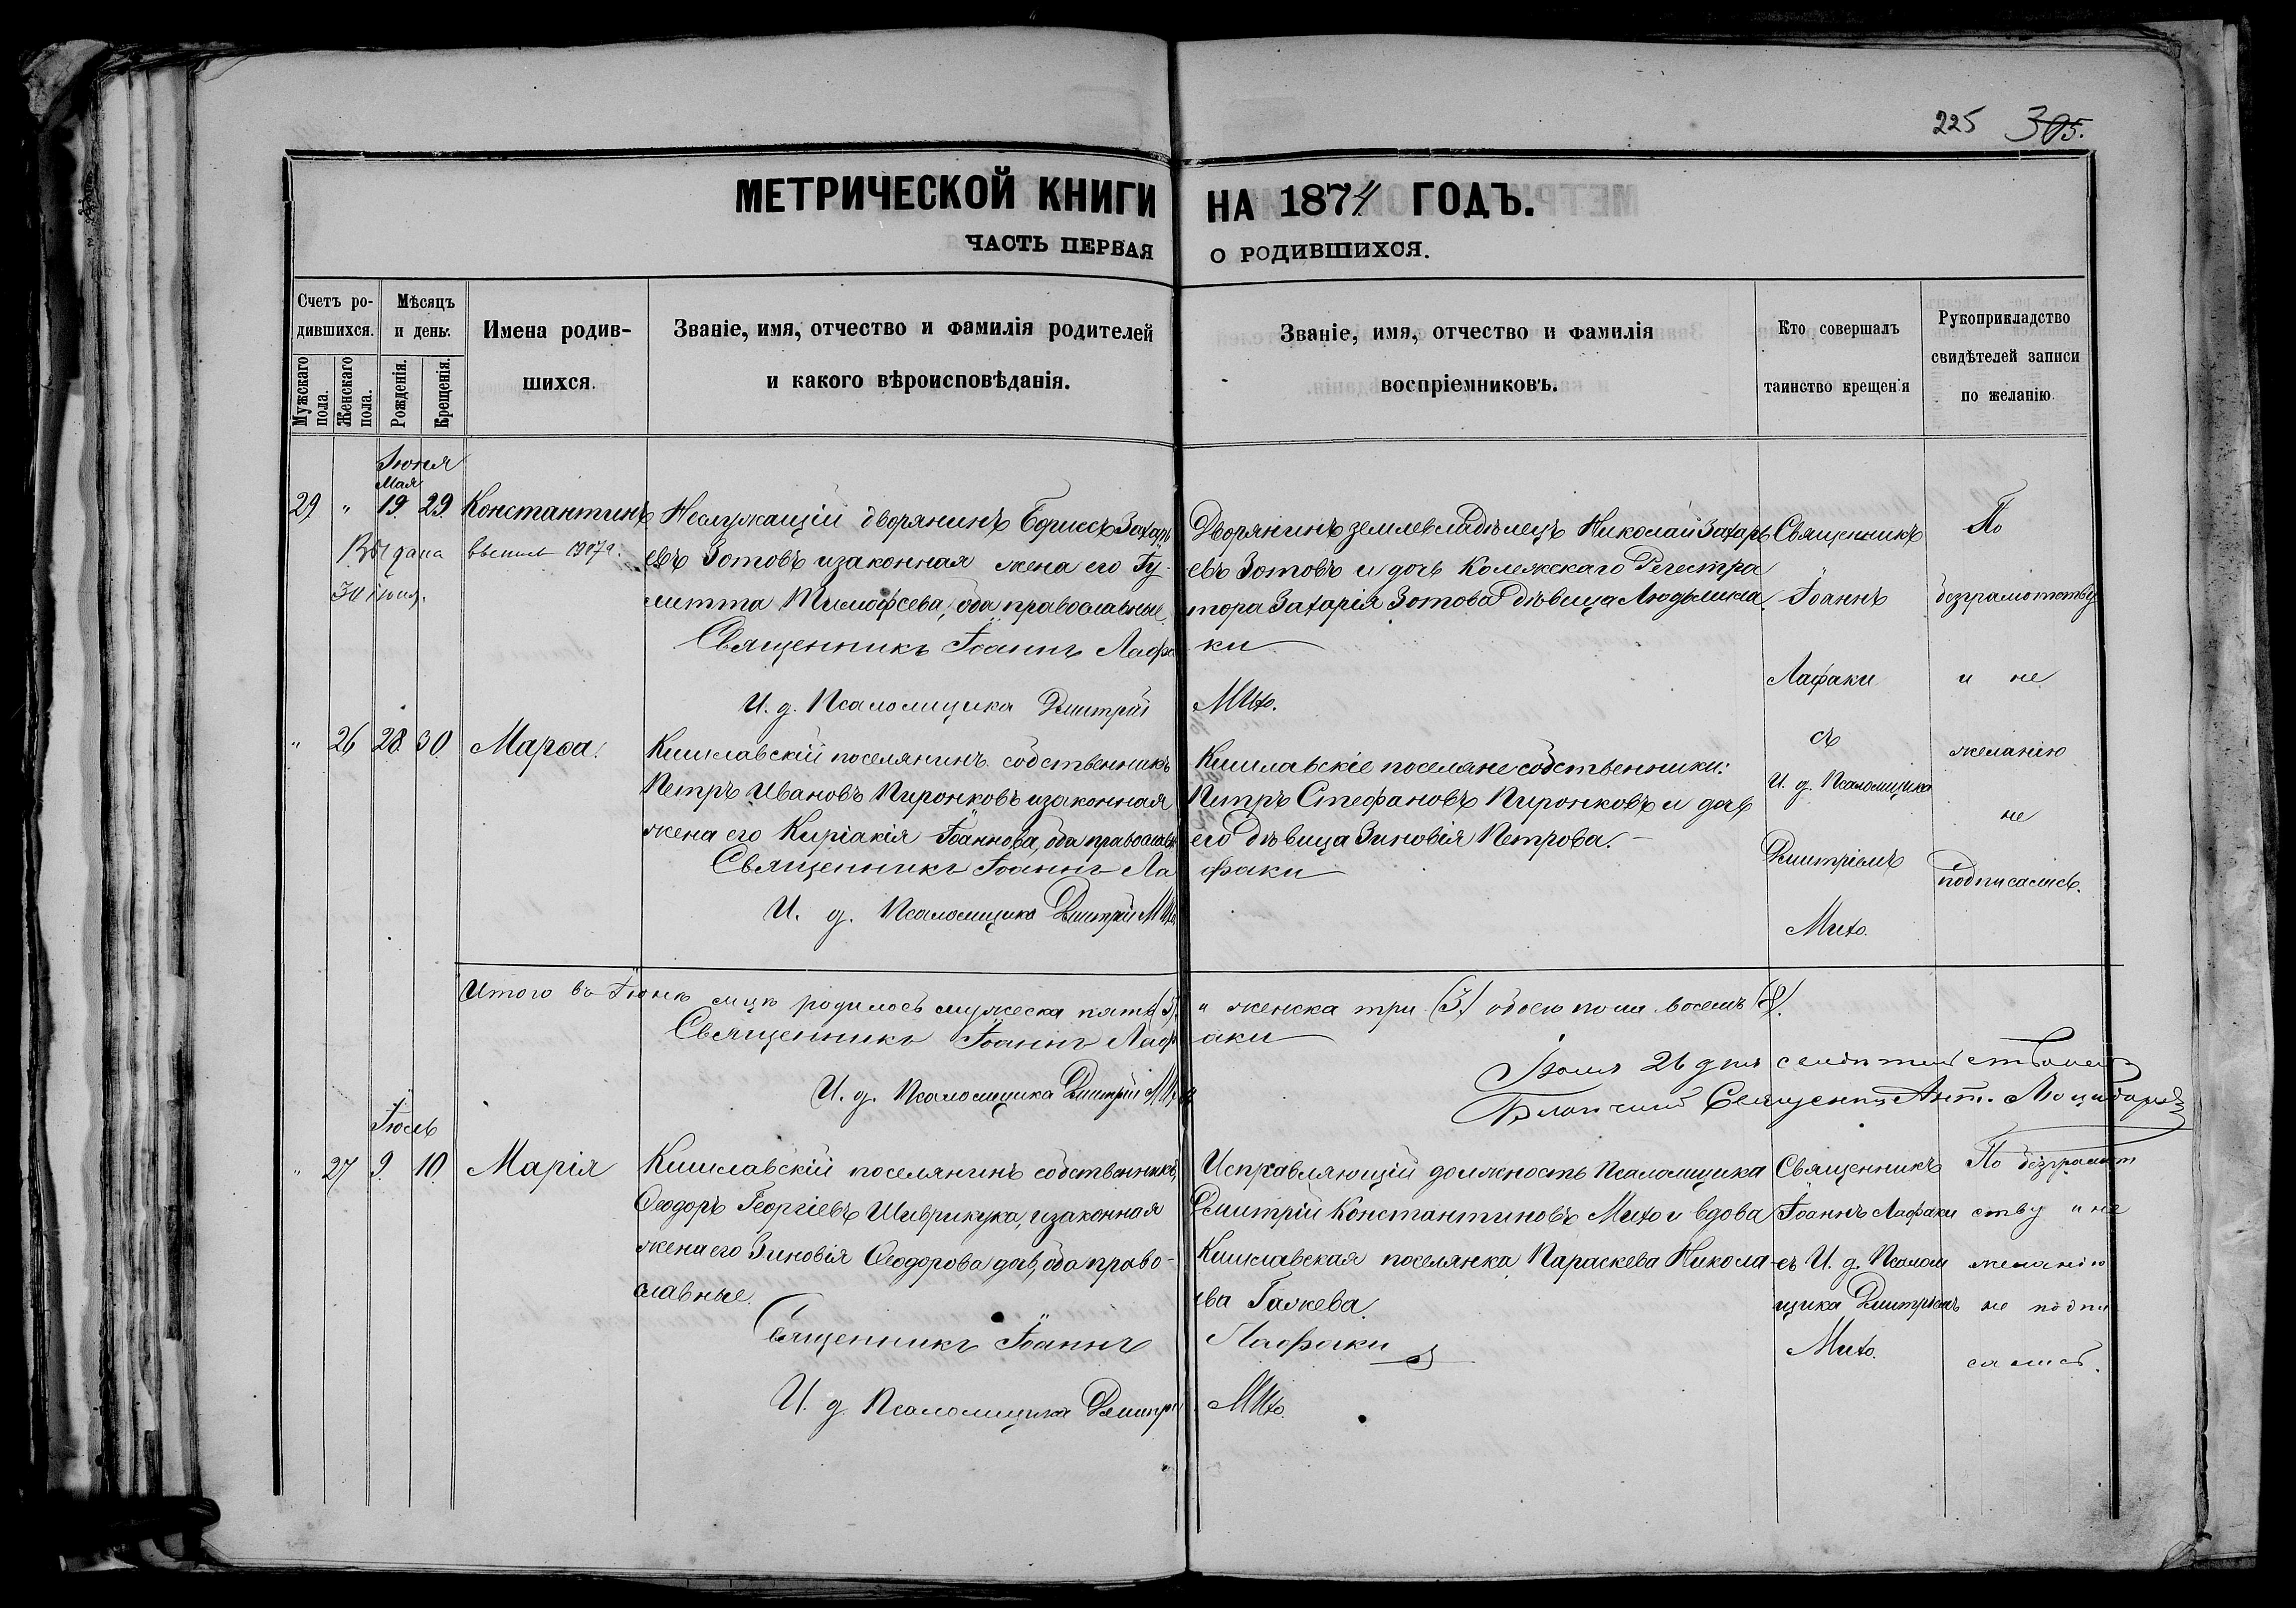 225 305.
МЕТРИЧЕСКОЙ КНИГИ НА 1874 ГОДЪ.
ЧАСТЬ ПЕРВАЯ О РОДИВШИХСЯ.
Счетъ ро-
дившихся.
Мужскаго пола.
Женскаго пола.
Мѣсяцъ
и день.
Рожденія.
Крещенія.
Имена родив-
шихся.
Званіе, имя, отчество и фамилія родителей
и какого вѣроисповѣданія.
Званіе, имя, отчество и фамилія
воспріемниковъ.
Кто совершалъ
таинство крещенія
Рукоприкладство
свидѣтелей записи
по желанію.
Іюня
Мая
29 " 19. 29. Константинъ
Выдана выпись
30 іюня.
Неслужащій дворянинъ Борисъ Захарь
евъ Зотовъ изаконная жена его Іу-
литта Тимофеева, оба православные.
Священникъ Іоаннъ Лафа
ки
И. д. Псаломщика Дмитрій
Михо.
Дворянинъ землевладѣлецъ Николай Захарь
евъ Зотовъ и дочь Колежскаго Регестра
тора Захарія Зотова дѣвица Людьмила.
Священникъ
Іоаннъ
Лафаки
съ
И. д. Псаломщика
Дмитріемъ
Михо.
По
безграмотству
и не
желанію
не
подписались.
" 26 28. 30. Марѳа.
Кишлавскій поселянинъ собственникъ
Петръ Ивановъ Пиронковъ изаконная
жена его Киріакія Іоаннова, оба православн
Священникъ Іоаннъ Ла
факи
И. д. Псаломщика Дмитрій Михо
Кишлавскіе поселяне собственники:
Петръ Стефановъ Пиронковъ и дочь
его дѣвица Зиновія Петрова.
Итого въ Іюнѣ мцѣ родилось мужеска пять (5)
" женска три (3) обоего пола восемь (8).
Священникъ Іоаннъ Лаф
аки
И. д. Псаломщика Дмитрій Михо
Іюля 26 дня
Благочинный Священникъ
Іюль
" 27 9. 10. Марія
Кишлавскій поселянинъ собственникъ,
Ѳеодоръ Георгіевъ Шиврикука, изаконная
жена его Зиновія Ѳеодорова дочь, оба право-
славные.
Священникъ Іоаннъ
Лафаки
И. д. Псаломщика Дмитрі
Михо.
Исправляющій должность Псаломщика
Дмитрій Константиновъ Михо и вдова
Кишлавская поселянка Параскева Никола-
ева Гажева.
Священникъ
Іоаннъ Лафаки
съ И. д. Псалом
щика Дмитріемъ
Михо.
По безграмот
ству и не
желанію
не подпи
сались.